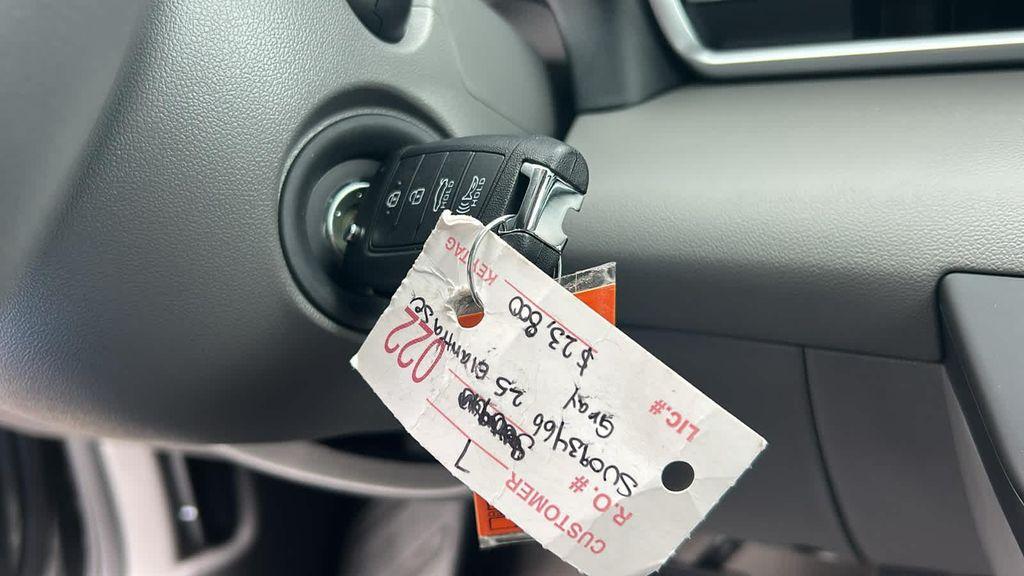 KEY TAG
022
CUSTOMER 7
R.O.# SU093466 25 Elantra SE
Gray
LIC.# $23,800
HOLD
HOLD